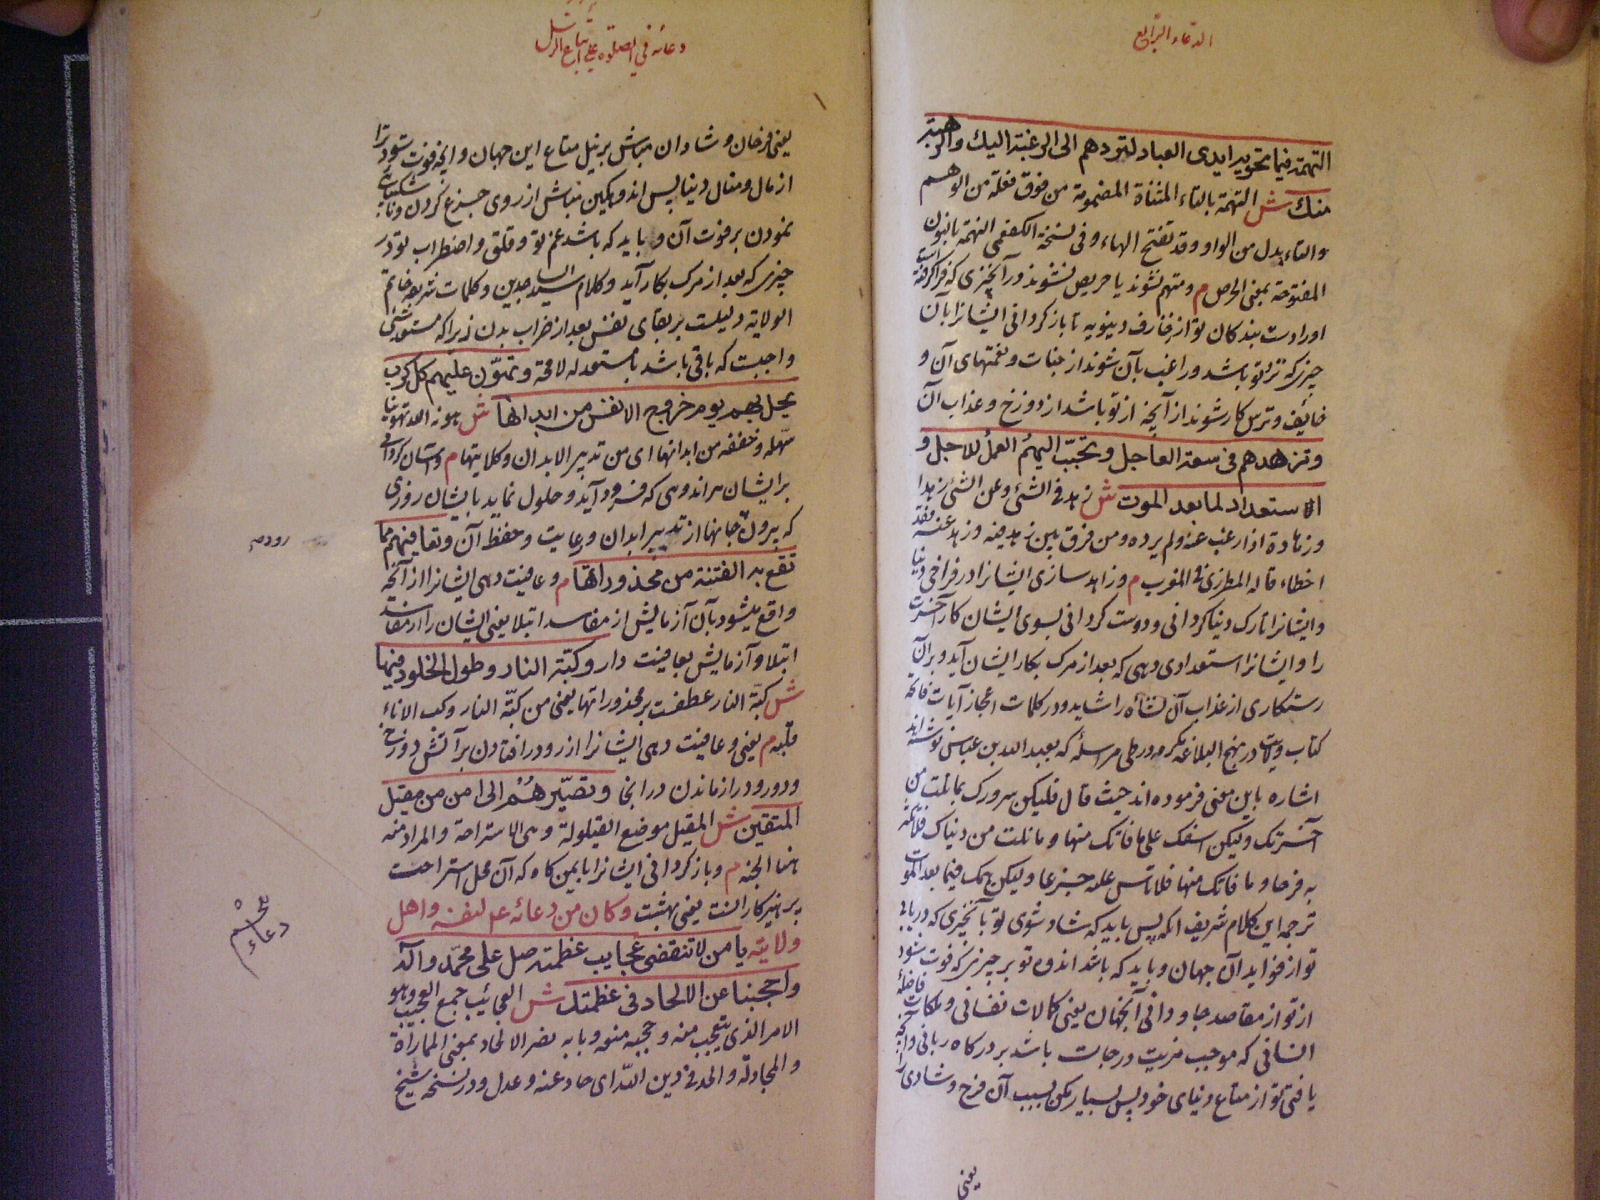 الدعاء الرابع
التهمة فيما تحويه ايدى العباد لتردهم الى الرغبة اليك والرهبة
منك ش التهمة بالتاء المثناة المضمومة من فوق فعلة من الوهم
والتاء بدل من الواو وقد تفتح الهاء وفى نسخة الكفعمى النهمة بالنون
المفتوحة بمعنى الحرص م ومتهم نشوند يا حريص نشوند در آنچيزى كه فرا گرفته است
اورا دست بندكان تو از زخارف دينويه تا باز كردانى ايشانرا بآن
چيزى كه نزد تو باشد وراغب بآن شوند از جنات ونعمتهاى آن و
خايف وترس كار شوند از آنچه از تو باشد از دوزخ وعذاب آن
وتزهدهم فى سعة العاجل وتحبب اليهم العمل للاجل و
الاستعداد لما بعد الموت ش زهد فى الشئ وعن الشئ زهدا
وزهادة اذا رغب عنه ولم يرده ومن فرق بين زهد فيه وزهد عنه فقد
اخطاء قاله المطرزى فى المغرب م وزاهد سازى ايشانرا در فراخى دنيا
وايشانرا تارك دنيا كردانى ودوست كردانى بسوى ايشان كار آخرت
را وايشانرا استعدادى دهى كه بعد از مرك بكار ايشان آيد وبرآن
رستكارى از عذاب آن نشاه را شايد ودر كلمات اعجاز آيات فاتحه
كتاب ولايت در نهج البلاغة مكرم در طى مرسله كه بعبد الله بن عباس نوشته اند
اشاره باين معنى فرموده اند حيث قال فليكن سرورك بما نلت من
آخرتك وليكن اسفك على ما فاتك منها وما نلت من دنياك فلا تكثر
به فرحا وما فاتك منها فلا تاس عليه جزعا وليكن همك فيما بعد الموت
ترجمه اين كلام شريف انكه پس بايد كه شاد شوى تو بآنچيزى كه دريابى
تو از فوايد آن جهان وبايد كه باشد اندوه تو بر چيزى كه فوت شود
از تو از مقاصد جاودانى آنجهان يعنى كمالات نفسانى وملكات فاضلهٔ
انسانى كه موجب مزيت درجات باشد بر دركاه ربانى وآنچه
يافتى تو از متاع دنياى خود پس بسيار مكن بسبب آن فرح وشادى را
يعنى
دعائه فى الصلوة على اتباع الرسل
يعنى فرحان وشادان مباش بر نيل متاع اين جهان وانچه فوت شود ترا
از مال ومنال دنيا پس اندوهكين مباش از روى جزع كردن و شكيبائى
نمودن بر فوت آن وبايد كه باشد غم تو وقلق واضطراب تو در
چيزى كه بعد از مرك بكار آيد وكلام سيد الساجدين وكلمات شريفه خاتم
الولاية دليلست بر بقاى نفس بعد از خراب بدن زيرا كه مستعد شئ
واجبست كه باقى باشد با مستعد له لا محة وتهون عليهم كل كرب
يحل بهم يوم خروج الانفس من ابدانها ش هونه الله تهوينا
سهله وخففه من ابدانها اى من تدبير الابدان وكلايتها م واسان كردانى
بر ايشان هر اندوهى كه فرود آيد وحلول نمايد بايشان روزى
كه بيرون جانها از تدبير ابدان ورعايت وحفظ آن وتعافيهم مما
تقع به الفتنة من محذوراتها م وعافيت دهى ايشانرا از آنچه
واقع ميشود بآن آزمايش از مفاسد ابتلا يعنى ايشان را از مفاسد
ابتلا وآزمايش بعافيت دار وكبة النار وطول الخلود فيها
ش كبة النار عطفست بر محذوراتها يعنى من كبة النار وكب الاناء
قلبه م يعنى وعافيت دهى ايشانرا از رو در افتادن بر آتش دوزخ
ودور ودراز ماندن در انجا وتصيرهم الى امن من مقيل
المتقين ش المقيل موضع القيلولة وهى الاستراحة والمراد منه
هنا الجنة م وباز كردانى ايشانرا بايمن كاه كه آن محل استراحت
پرهيزكارانست يعنى بهشت وكان من دعائه ع م لنفسه واهل
ولايته يا من لا تنقضى عجايب عظمته صل على محمد وآله
واحجبنا عن الالحاد فى عظمتك ش العجائب جمع العجيب وهو
الامر الذى يتعجب منه وحجبه منعه وبابه نصر الالحاد بمعنى المماراة
والمجادلة والحد فى دين الله اى حاد عنه وعدل ودر نسخه شيخ
دعاء
پنجم